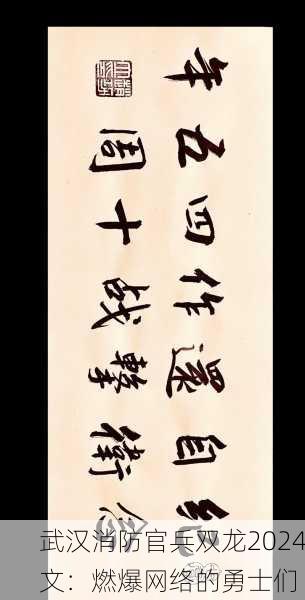 年五四作還自纪
周十战擊衛念
武汉消防官兵双龙2024
文：燃爆网络的勇士们